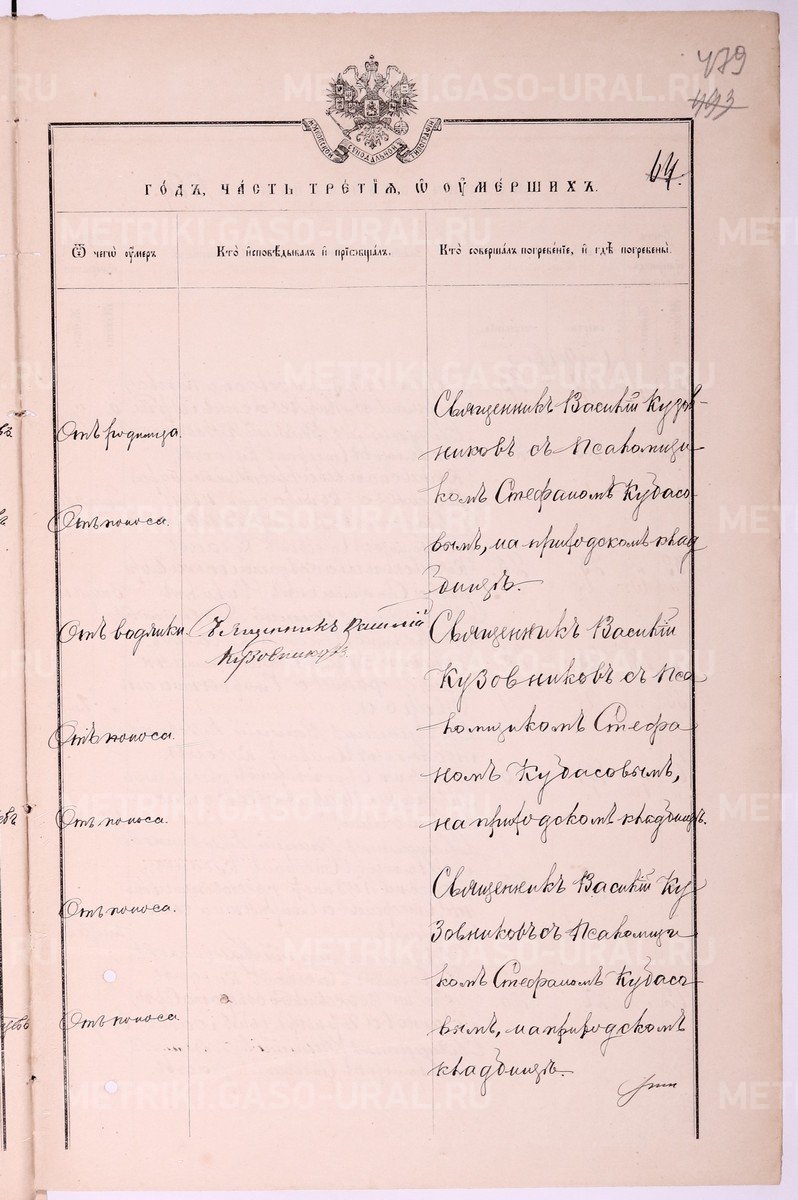 479
493
МОСКОВСКОЙ СѴНОДАЛЬНОЙ ТИПОГРАФІИ
64.
ГО́ДЪ, ЧА́СТЬ ТРЕ́ТІѦ, Ѿ ОУ҆МЕ́РШИХЪ.
Ѿ чегѡ̀ оу҆́меръ
Кто̀ и҆сповѣ́дывалъ и҆ прїѡбща́лъ.
Кто̀ соверша́лъ погребе́нїе, и҆ гдѣ̀ погребены̀.
Отъ родимца.
Священникъ Василій Кузов-
никовъ съ Псаломщи-
Отъ поноса.
комъ Стефаномъ Кубасо-
вымъ, на приходскомъ клад
бищѣ.
Отъ водянки
Священникъ Василій
Кузовниковъ
Священникъ Василій
Кузовниковъ съ Пса
Отъ поноса.
ломщикомъ Стефа
номъ Кубасовымъ,
Отъ поноса.
на приходскомъ кладбищѣ.
Отъ поноса.
Священникъ Василій Ку
зовниковъ съ Псаломщи
комъ Стефаномъ Кубасо
Отъ поноса.
вымъ, на приходскомъ
кладбищѣ.
METRIKI.GASO-URAL.RU